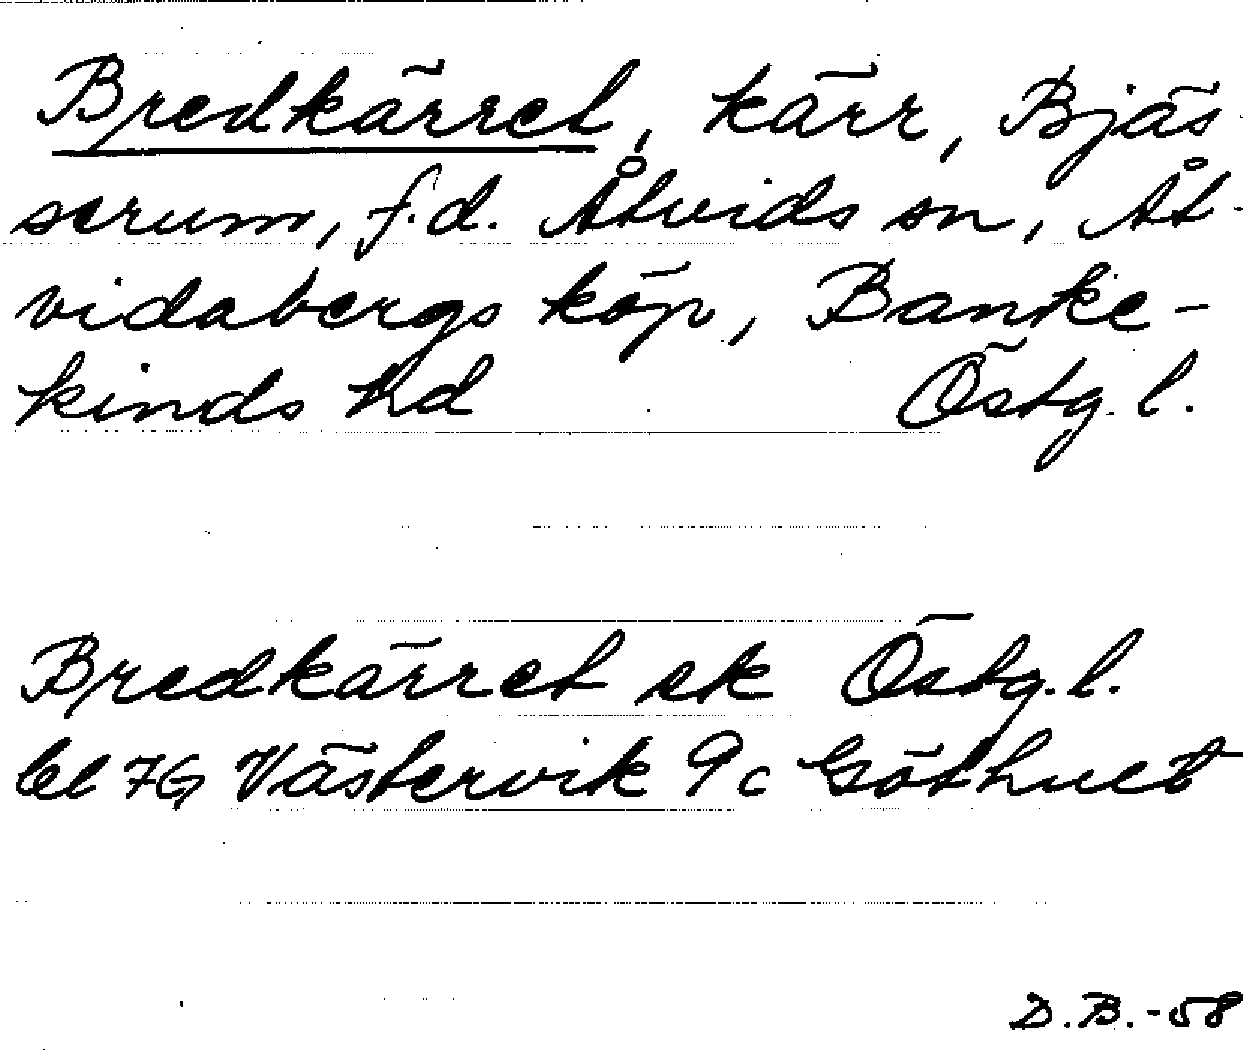 Bredkärret, kärr, Bjäs-
serum, f.d. Åtvids sn, Åt-
vidabergs köp, Banke-
kinds hd Östg. l.
Bredkärret ek Östg. l.
bl 7G Västervik 9c Göthult
D.B.-58